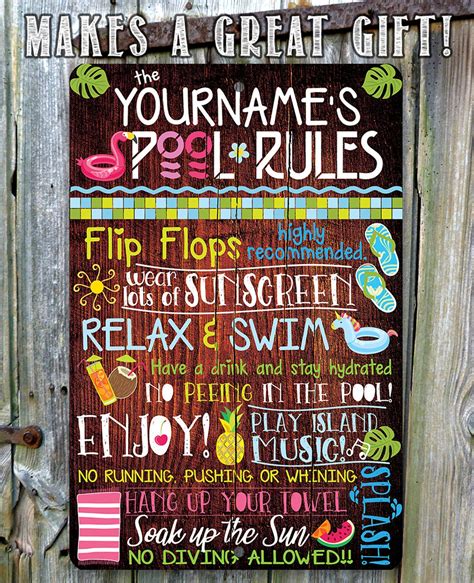 MAKES A GREAT GIFT!
the
YOURNAME'S
POOL RULES
Flip Flops highly recommended.
wear lots of SUNSCREEN
RELAX & SWIM
Have a drink and stay hydrated
NO PEEING IN THE POOL!
ENJOY! PLAY ISLAND MUSIC!
NO RUNNING, PUSHING OR WHINING
HANG UP YOUR TOWEL
SPLASH!
Soak up the Sun
NO DIVING ALLOWED!!